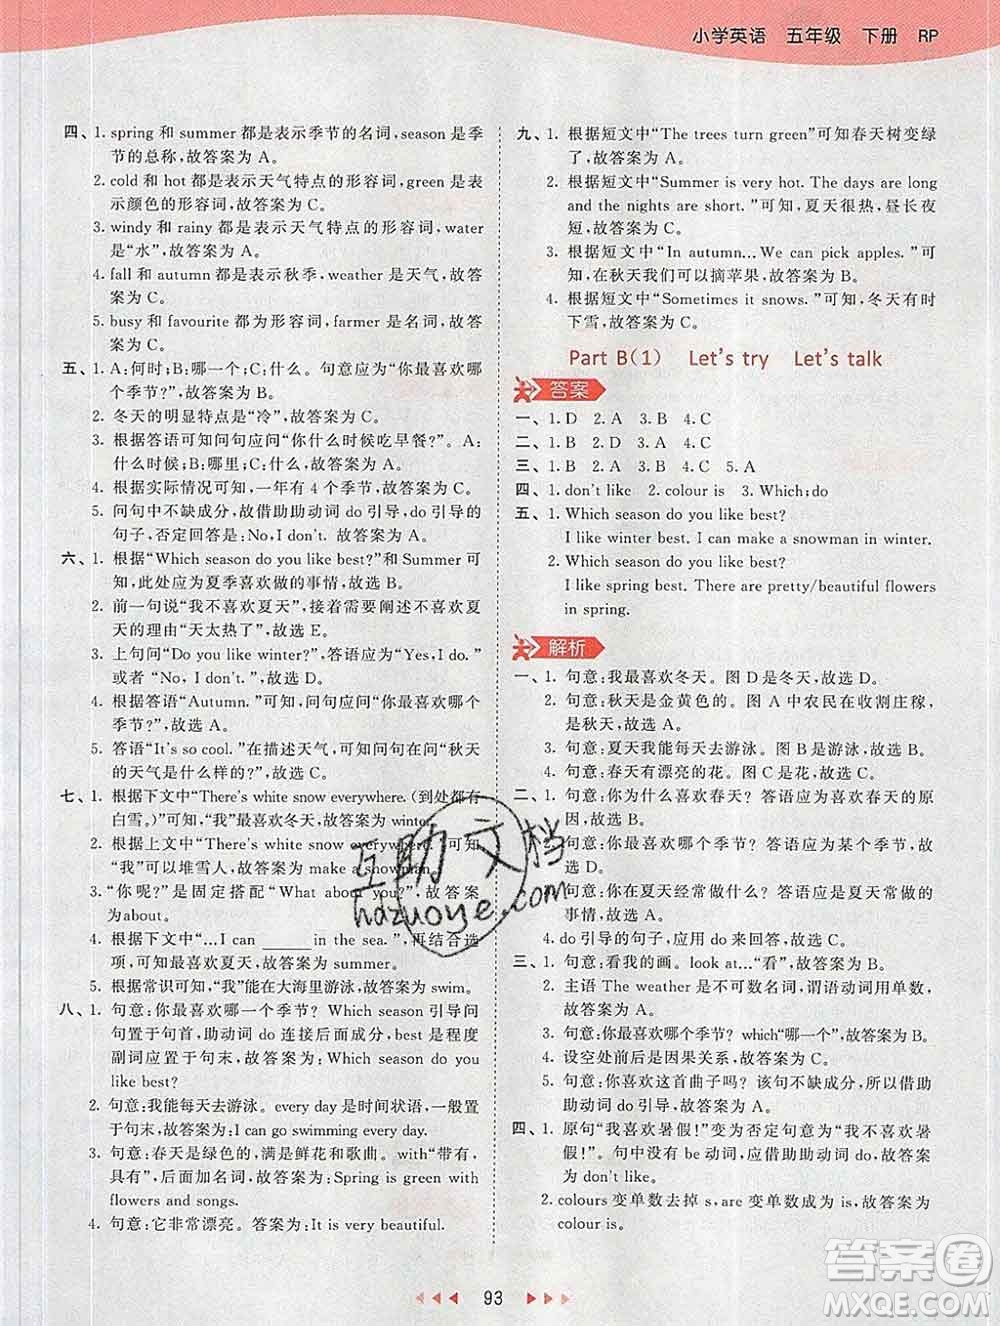 小学英语 五年级 下册 RP
四、1. spring 和 summer 都是表示季节的名词,season 是季
节的总称,故答案为 A。
2. cold 和 hot 都是表示天气特点的形容词,green 是表
示颜色的形容词,故答案为 C。
3. windy 和 rainy 都是表示天气特点的形容词,water
是“水”,故答案为 B。
4. fall 和 autumn 都是表示秋季,weather 是天气,故答
案为 C。
5. busy 和 favourite 都为形容词,farmer 是名词,故答
案为 C。
五、1. A:何时;B:哪一个;C:什么。句意为“你最喜欢哪
个季节?”,故答案为 B。
2. 冬天的明显特点是“冷”,故答案为 C。
3. 根据答语可知问句应问“你什么时候吃早餐?”。A:
什么时候;B:哪里;C:什么,故答案为 A。
4. 根据实际情况可知,一年有 4 个季节,故答案为 C。
5. 问句中不缺成分,故借助助动词 do 引导,do 引导的
句子,否定回答:No,I don't. 故答案为 C。
六、1. 根据“Which season do you like best?”和 Summer 可
知,此处应为夏季喜欢做的事情,故选 B。
2. 前一句说“我不喜欢夏天”,接着需要阐述不喜欢夏
天的理由“天太热了”,故选 E。
3. 上句问“Do you like winter?”,答语应为“Yes,I do.”
或者“No,I don't.”,故选 D。
4. 根据答语“Autumn.”可知,问句应问“你最喜欢哪个
季节?”,故选 A。
5. 答语“It's so cool.”在描述天气,可知问句在问“秋天
的天气是什么样的?”,故选 C。
七、1. 根据下文中“There's white snow everywhere.(到处都有
白雪。)”可知,“我”最喜欢冬天,故答案为 winter.
2. 根据上文中“There's white snow everywhere.”可知
“我”可以堆雪人,故答案为 make a snowman.
3. “你呢?”是固定搭配“What about you?”,故答案
为about。
4. 根据下文中“…I can ______ in the sea.”,再结合选
项,可知最喜欢夏天,故答案为 summer.
5. 根据常识可知,“我”能在大海里游泳,故答案为 swim。
八、1. 句意:你最喜欢哪一个季节? Which season 引导问
句置于句首,助动词 do 连接后面成分,best 是程度
副词应置于句末,故答案为:Which season do you
like best?
2. 句意:我能每天去游泳。every day 是时间状语,一般置
于句末,故答案为:I can go swimming every day.
3. 句意:春天是绿色的,满是鲜花和歌曲。with“带有,
具有”,后面加名词,故答案为:Spring is green with
flowers and songs.
4. 句意:它非常漂亮。答案为:It is very beautiful.
九、1. 根据短文中“The trees turn green”可知春天树变绿
了,故答案为 B。
2. 根据短文中“Summer is very hot. The days are long
and the nights are short.”可知,夏天很热,昼长夜
短,故答案为 A。
3. 根据短文中“In autumn…We can pick apples.”可
知,在秋天我们可以摘苹果,故答案为 B。
4. 根据短文中“Sometimes it snows.”可知,冬天有时
下雪,故答案为 C。
Part B(1) Let's try Let's talk
答案
一、1. D 2. A 3. B 4. C
二、1. B 2. D 3. A 4. C
三、1. B 2. A 3. B 4. C 5. A
四、1. don't like 2. colour is 3. Which;do
五、1. Which season do you like best?
I like winter best. I can make a snowman in winter.
2. Which season do you like best?
I like spring best. There are pretty/beautiful flowers
in spring.
解析
一、1. 句意:我最喜欢冬天。图 D 是冬天,故选 D。
2. 句意:秋天是金黄色的。图 A 中农民在收割庄稼,
是秋天,故选 A。
3. 句意:夏天我能每天去游泳。图B是游泳,故选 B。
4. 句意:春天有漂亮的花。图 C是花,故选 C。
二、1. 句意:你为什么喜欢春天? 答语应为喜欢春天的原
因,故选 B。
2. 句意:你最喜欢哪个季节? 答语应为某个季节,故
选 D。
3. 句意:你在夏天经常做什么? 答语应是夏天常做的
事情,故选 A。
4. do 引导的句子,应用 do 来回答,故选 C。
三、1. 句意:看我的画。look at…“看”,故答案为 B。
2. 主语 The weather 是不可数名词,谓语动词用单数,
故答案为 A。
3. 句意:你最喜欢哪个季节? which“哪一个”,故答案为 B。
4. 设空处前后是因果关系,故答案为 C。
5. 句意:你喜欢这首曲子吗? 该句不缺成分,所以借助
助动词 do 引导,故答案为 A。
四、1. 原句“我喜欢暑假!”变为否定句意为“我不喜欢暑
假!”。句中没有 be 动词,应借助助动词 do,故答案
为 don't like。
2. colours 变单数去掉 s,are 变单数成为 is,故答案为
colour is。
93
互助文档
hazuoye.com
答案圈
MXQE.COM